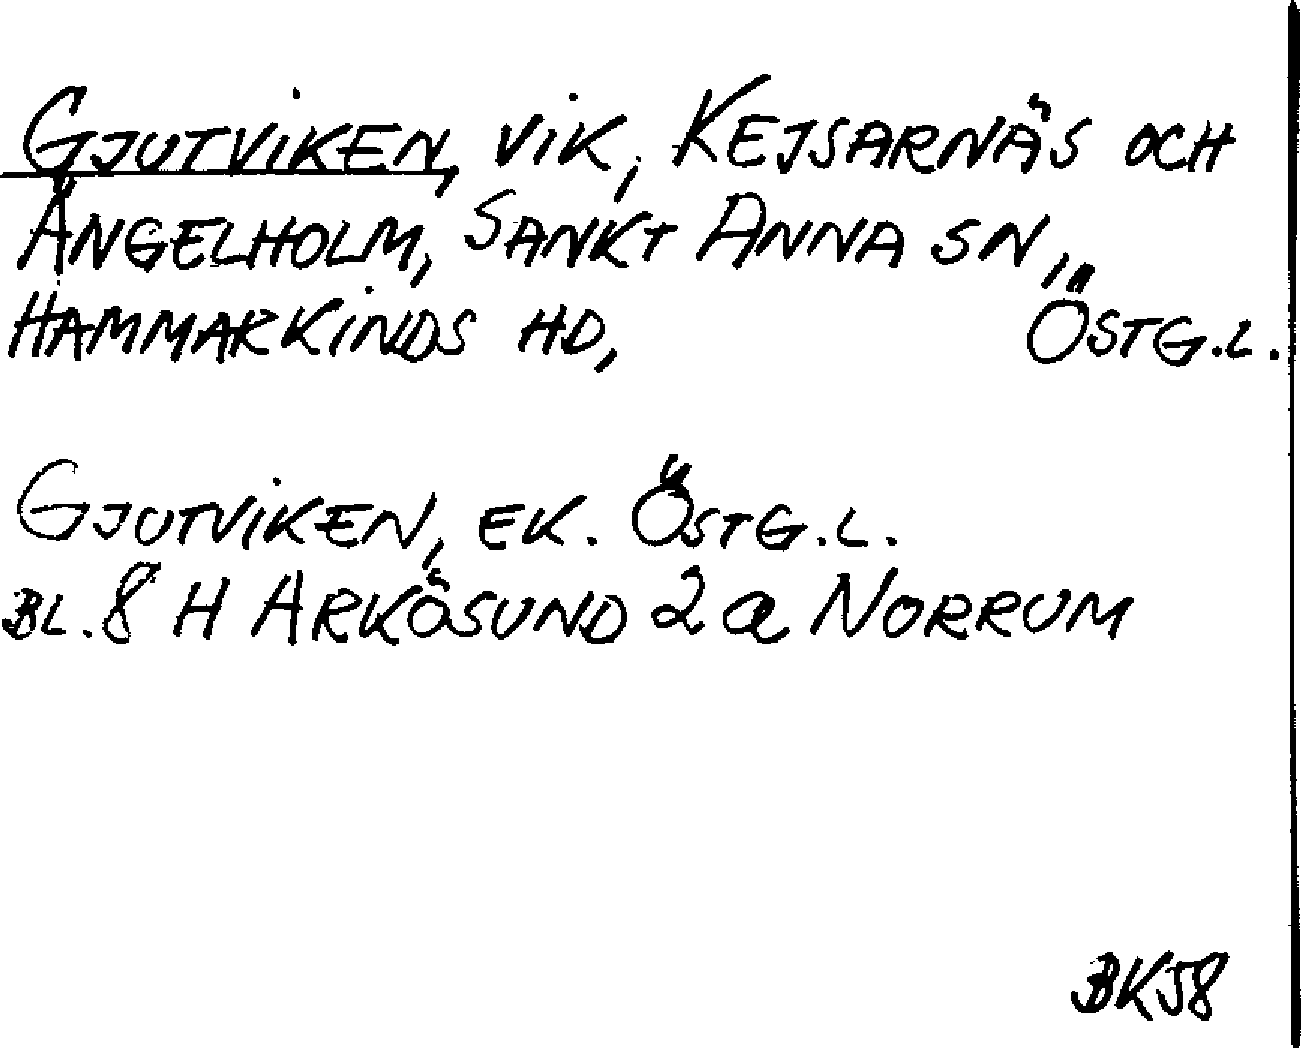 GJUTVIKEN, VIK, KEJSARNÄS OCH
ÄNGELHOLM, SANKT ANNA SN,
HAMMARKINDS HD, ÖSTG.L.
GJUTVIKEN, EK. ÖSTG.L.
BL. 8 H ARKÖSUND 2 a NORRUM
BK58